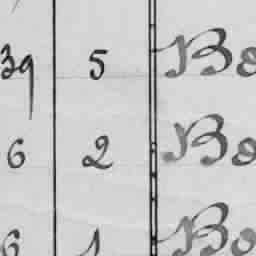 39 5 Bo
6 2 Bo
6 1 Bo